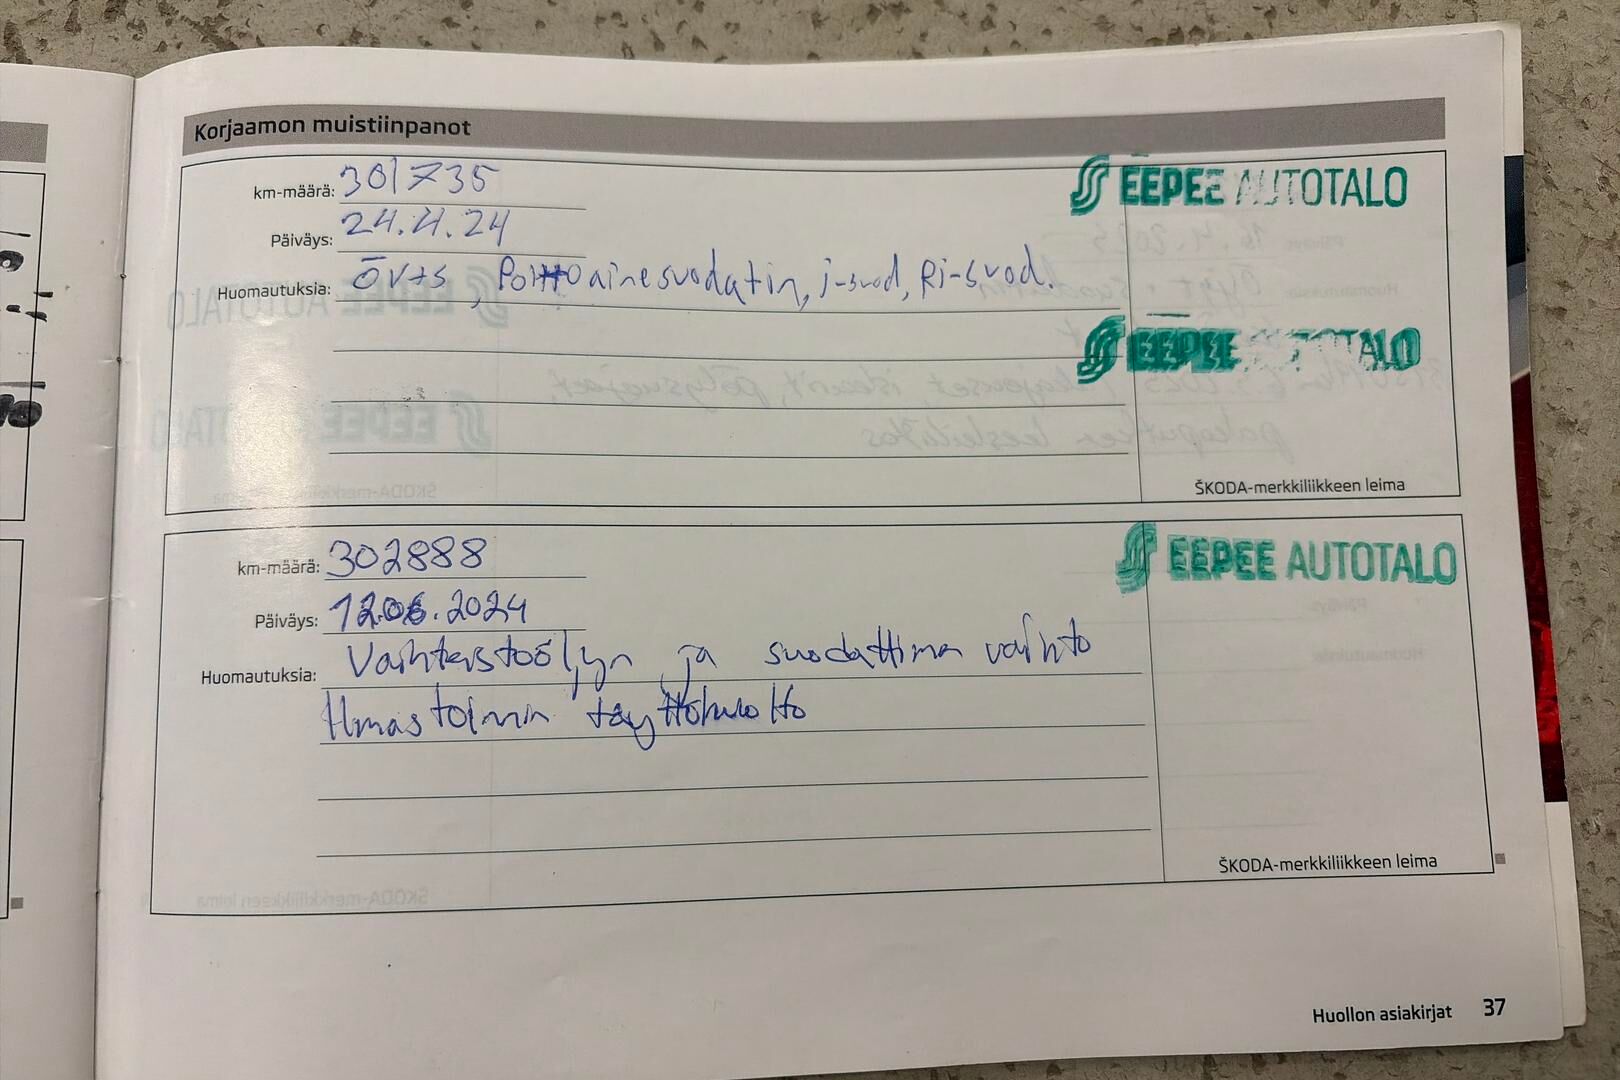 Korjaamon muistiinpanot
km-määrä: 301735
EEPEE AUTOTALO
Päiväys: 24.4.24
Huomautuksia: öv+s, Polttoainesuodatin, i-suod, Ri-suod.
EEPEE AUTOTALO
ŠKODA-merkkiliikkeen leima
km-määrä: 302888
EEPEE AUTOTALO
Päiväys: 12.06.2024
Huomautuksia: Vaihteistoöljyn ja suodattimen vaihto
Ilmastoinnin täyttöhuolto
ŠKODA-merkkiliikkeen leima
Huollon asiakirjat 37